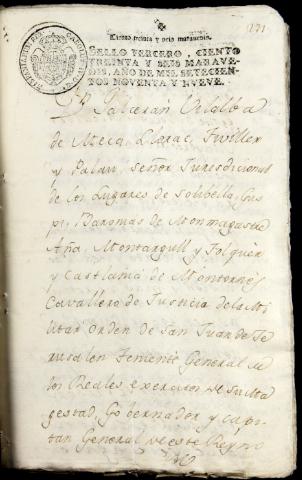 171
Ciento treinta y seis maravedis.
SELLO TERCERO, CIENTO
TREINTA Y SEIS MARAVE-
DIS, AÑO DE MIL SETECIEN-
TOS NOVENTA Y NUEVE.
Dn. Galceran Vilalba
de Meca, Llorac,
y Palau, señor Jurisdiccional
de los Lugares de Solibella,
Baronias de Monmagastre
Aña, Montargull y Folquer
y Castlania de Montornes
Cavallero de Justicia de la Mi
litar orden de San Juan de Je
rusalen Temiente General de
los Reales exercitos de su Ma
gestad, Gobernador y capi
tan General de este Reyno